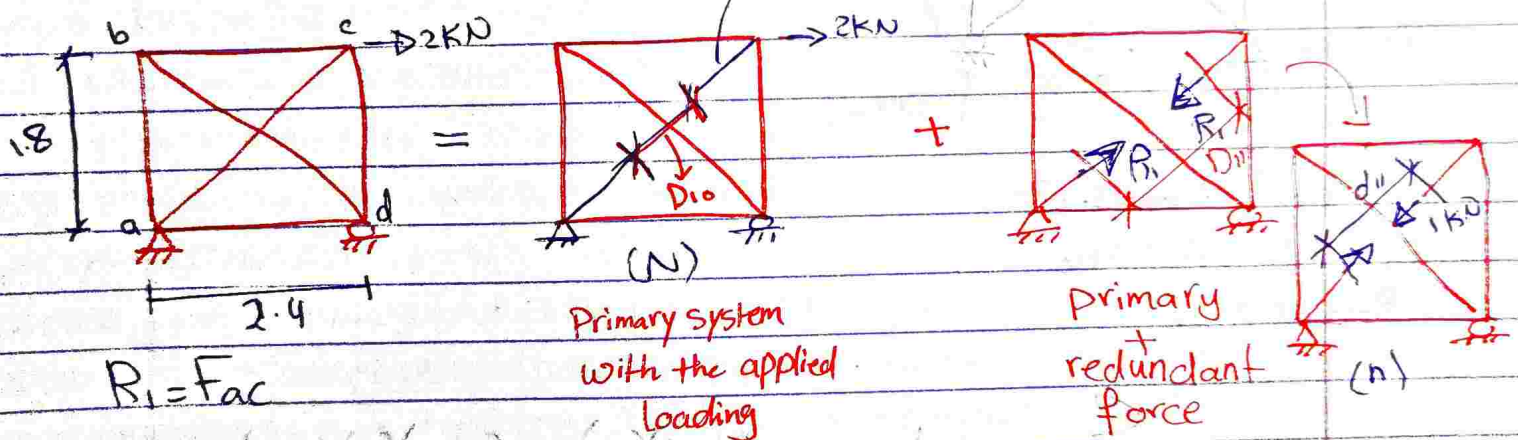 b
c
2KN
1.8
a
d
2.4
R₁=Fac
=
2KN
D₁₀
(N)
Primary system
with the applied
loading
+
R₁
R₁
D₁₁
primary
+
redundant
force
d₁₁
1KN
(n)